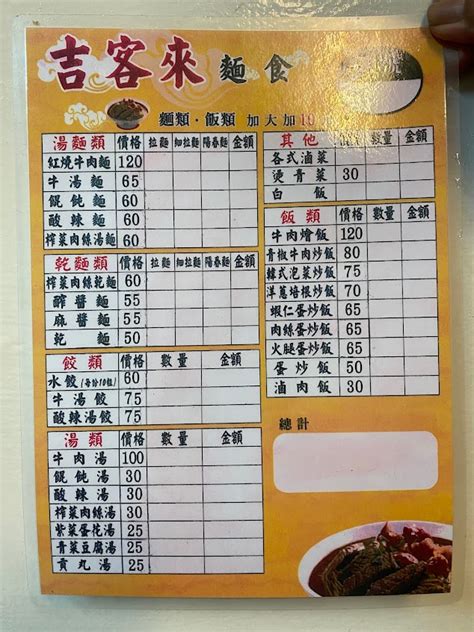 吉客來 麵食
麵類·飯類 加大加10
湯麵類 價格 拉麵 細拉麵 陽春麵 金額
紅燒牛肉麵 120
牛湯麵 65
餛飩麵 60
酸辣麵 60
榨菜肉絲湯麵 60
乾麵類 價格 拉麵 細拉麵 陽春麵 金額
榨菜肉絲乾麵 60
醡醬麵 55
麻醬麵 50
乾麵 50
餃類 價格 數量 金額
水餃(每份10粒) 60
牛湯餃 75
酸辣湯餃 75
湯類 價格 數量 金額
牛肉湯 100
餛飩湯 30
酸辣湯 30
榨菜肉絲湯 30
紫菜蛋花湯 25
青菜豆腐湯 25
貢丸湯 25
其他 價格 數量 金額
各式滷菜
燙青菜 30
白飯
飯類 價格 數量 金額
牛肉燴飯 120
青椒牛肉炒飯 80
韓式泡菜炒飯 75
洋蔥培根炒飯 70
蝦仁蛋炒飯 65
肉絲蛋炒飯 65
火腿蛋炒飯 65
蛋炒飯 50
滷肉飯 30
總計